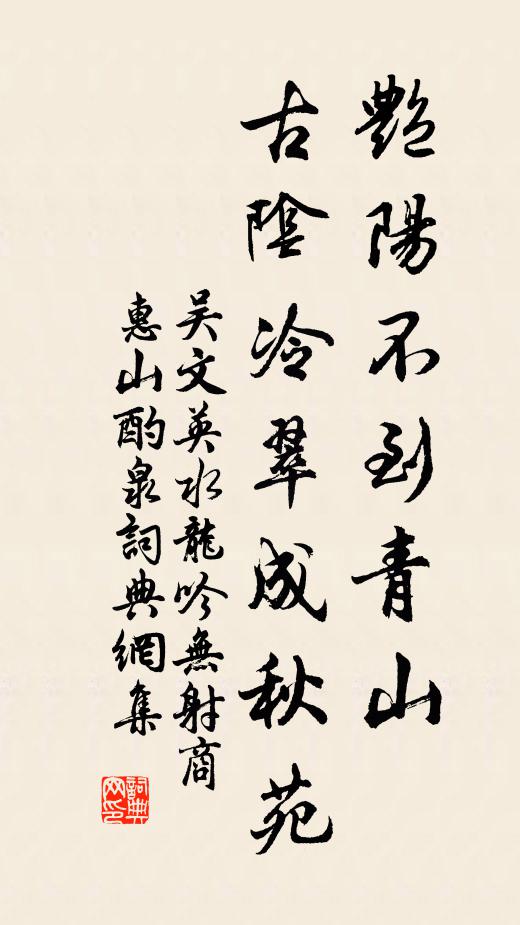 艷陽不到青山
古陰冷翠成秋苑
吴文英水龍吟無射商
惠山酌泉詞典網集
詞典
网印